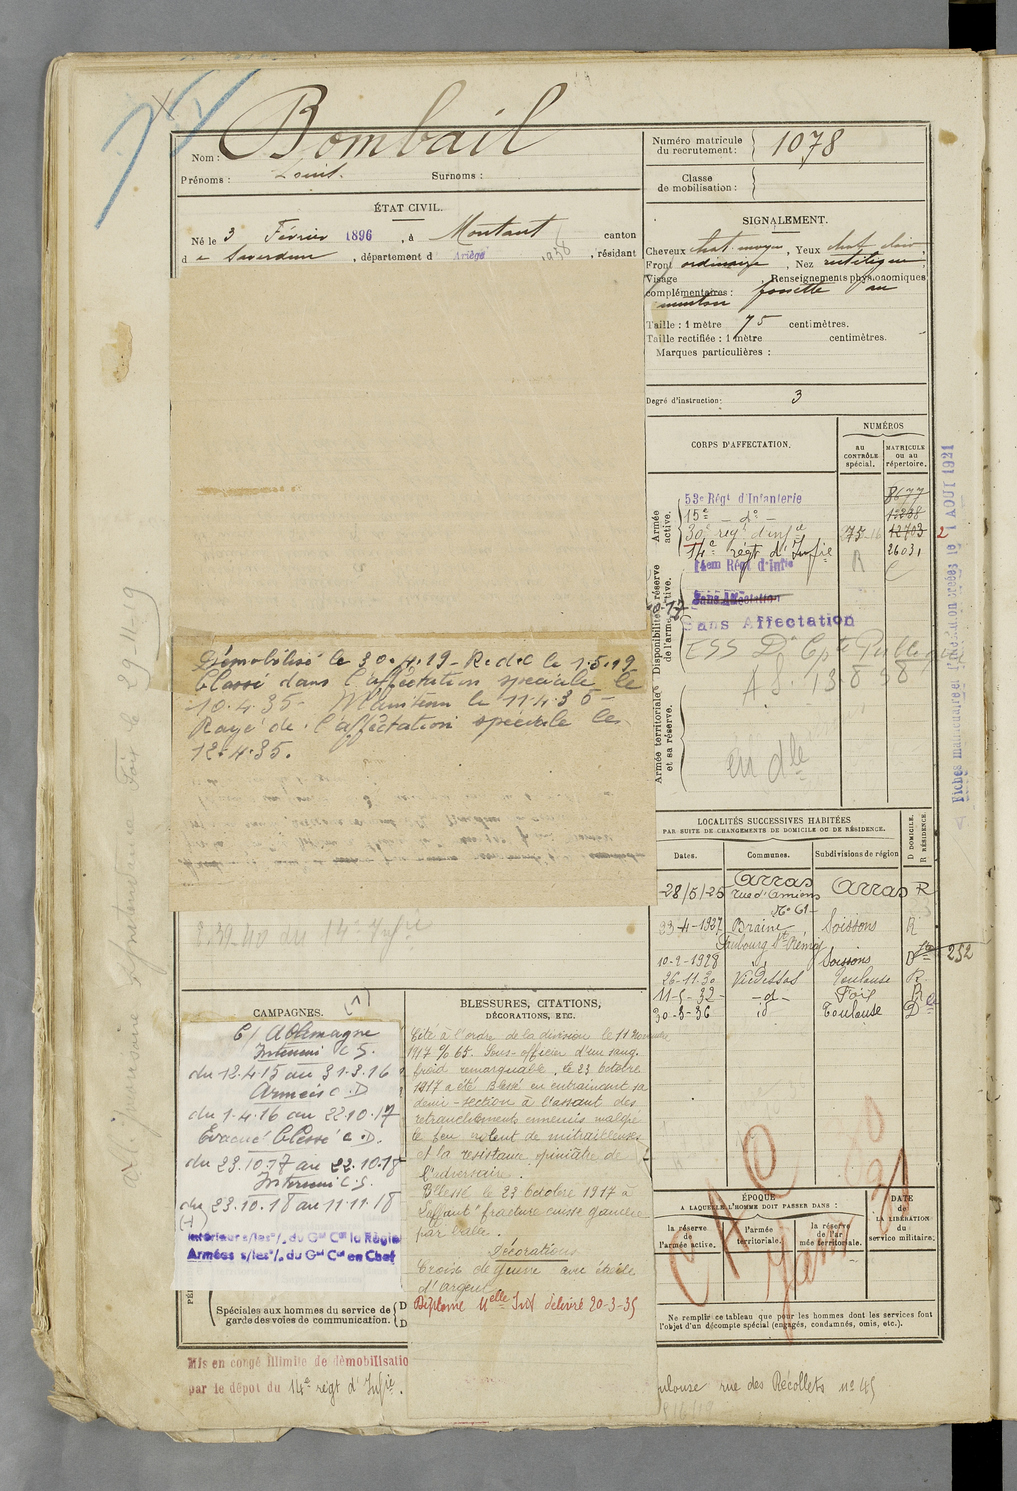 Bombail
Nom :
Prénoms : Louis. Surnoms :
Numéro matricule du recrutement : 1078
Classe de mobilisation :
ÉTAT CIVIL.
Né le 3 Février 1896, à Montaut canton
de Saverdun, département d Ariège, résidant
SIGNALEMENT.
Cheveux chat. moyen, Yeux chat. clair
Front ordinaire, Nez rectiligne
Visage Renseignements physionomiques
complémentaires : fossette au
menton
Taille : 1 mètre 75 centimètres.
Taille rectifiée : 1 mètre centimètres.
Marques particulières :
Degré d'instruction : 3
CORPS D'AFFECTATION.
NUMÉROS
au CONTRÔLE spécial.
MATRICULE ou au répertoire.
Armée active.
53e Régt d'Infanterie 8677
15e - do - 15238
30e regt d'infie 12703 2
14e régt d'Infie 26031
14em Régt d'Infie
Disponibilité et réserve de l'armée active.
Sans Affectation
Sans Affectation
Armée territoriale et sa réserve.
en dle
Fiches matriculaire et d'instruction créées le 1 AOUT 1921
29-11-19
Démobilisé le 30.4.19 - R.d.C le 1.5.19
Classé dans l'affectation spéciale le
10.4.35 - Maintenu le 11.4.35 -
Rayé de l'affectation spéciale le
12.4.35.
du 14e Infie
LOCALITÉS SUCCESSIVES HABITÉES
PAR SUITE DE CHANGEMENTS DE DOMICILE OU DE RÉSIDENCE.
Dates. Communes. Subdivisions de région D DOMICILE. R RÉSIDENCE.
28/5/25 Arras Arras R
rue d'Amiens
No 61
23-4-1927 Braine Soissons R
Faubourg St Rémy
10-2-1928 id Soissons D 252
26-11-30 Verdessas Toulouse R
11-5-32 -d- Foix R
30-3-36 id Toulouse D
CAMPAGNES. (1)
C/ Allemagne
Intérieur C S.
du 12.4.15 au 31.3.16
Armées C.D
du 1.4.16 au 22.10.17
Evacué blessé C.D.
du 23.10.17 au 22.10.18
Intérieur C S.
du 23.10.18 au 11.11.18
(1)
Intérieur s/les %, du Gal Cdt la Région
Armées s/les %, du Gal Cdt en Chef
BLESSURES, CITATIONS,
DÉCORATIONS, ETC.
Cité à l'ordre de la division le 11 Novembre
1917 % 65. Sous-officier d'un sang
froid remarquable, le 23 octobre
1917 a été Blessé en entrainant sa
demi-section à l'assaut des
retranchements ennemis malgré
le feu violent de mitrailleuses
et la résistance opiniâtre de
l'adversaire.
Blessé le 23 Octobre 1917 à
Laffaut "fracture cuisse gauche
par balle.
Décorations
Croix de guerre avec étoile
d'argent
Diplôme Melle Ind délivré 20-3-35
Spéciales aux hommes du service de
garde des voies de communication.
D
D
ÉPOQUE
A LAQUELLE L'HOMME DOIT PASSER DANS :
la réserve de l'armée active.
l'armée territoriale.
la réserve de l'armée territoriale.
DATE de LA LIBÉRATION du service militaire.
Ne remplir ce tableau que pour les hommes dont les services font
l'objet d'un décompte spécial (engagés, condamnés, omis, etc.).
Mis en congé illimité de démobilisatio
par le dépôt du 14e régt d'Infie.
rue des Récollets no 45